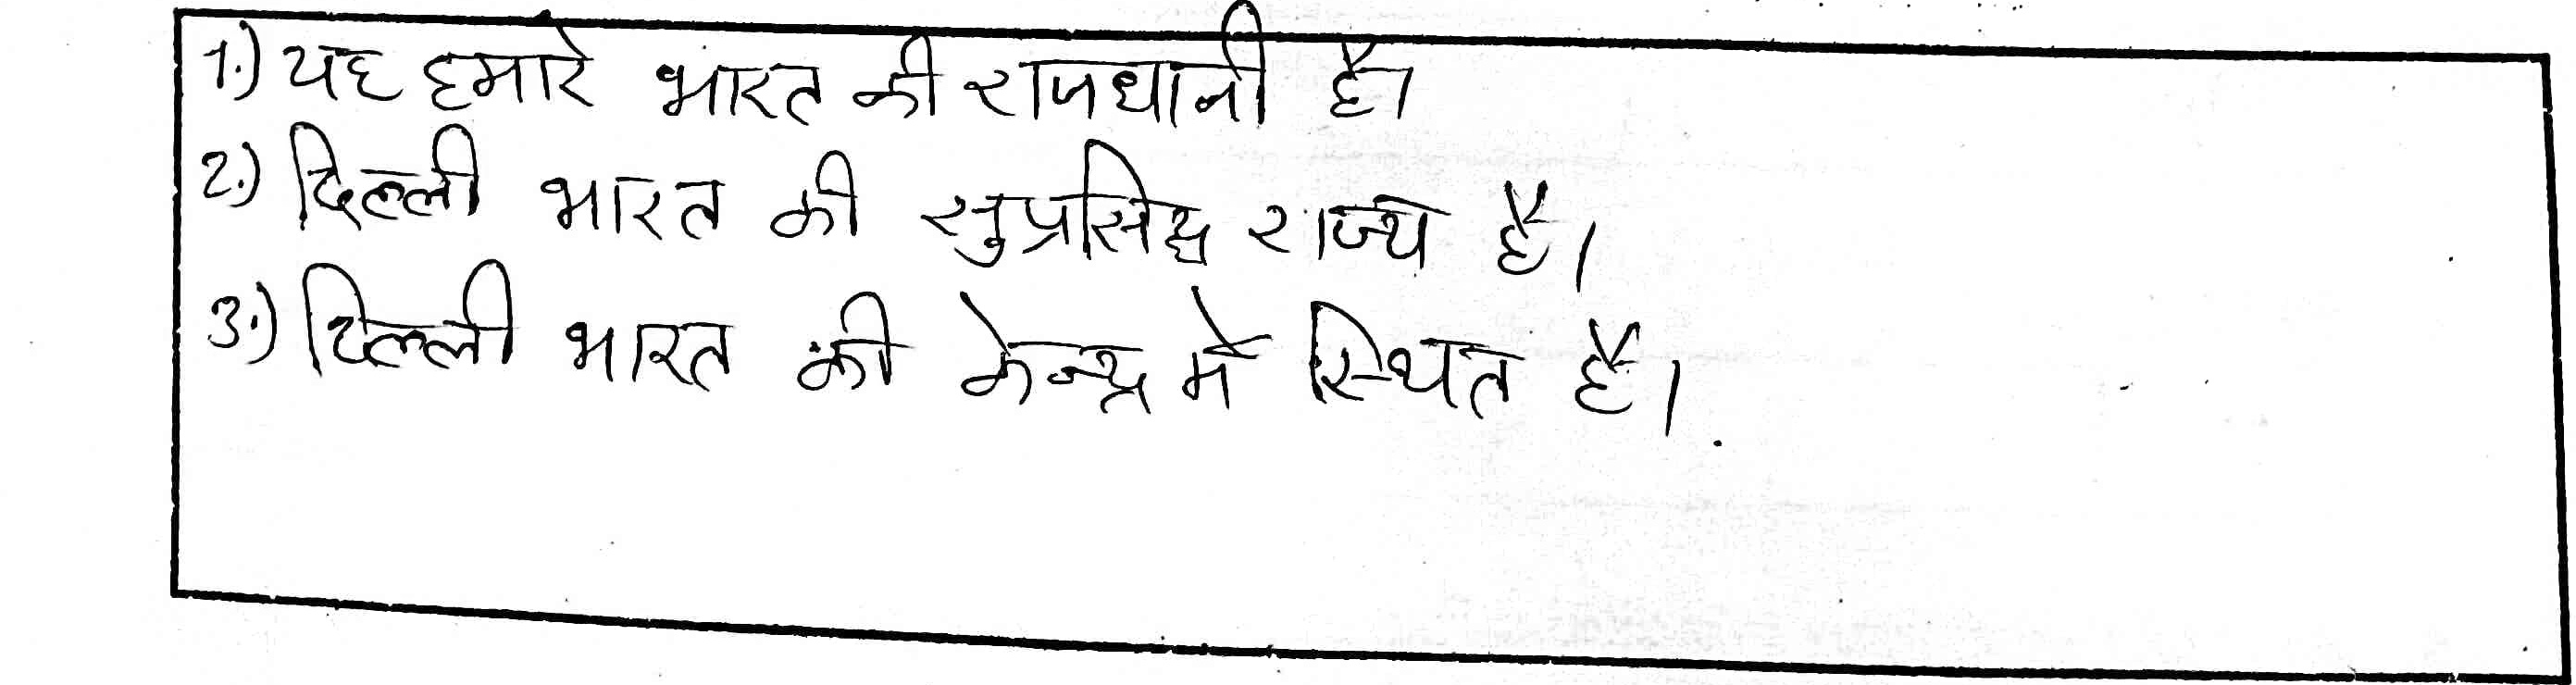 1.) यह हमारे भारत की राजधानी है।
2.) दिल्ली भारत की सुप्रसिद्ध राज्य है।
3.) दिल्ली भारत की केन्द्र मे स्थित है।